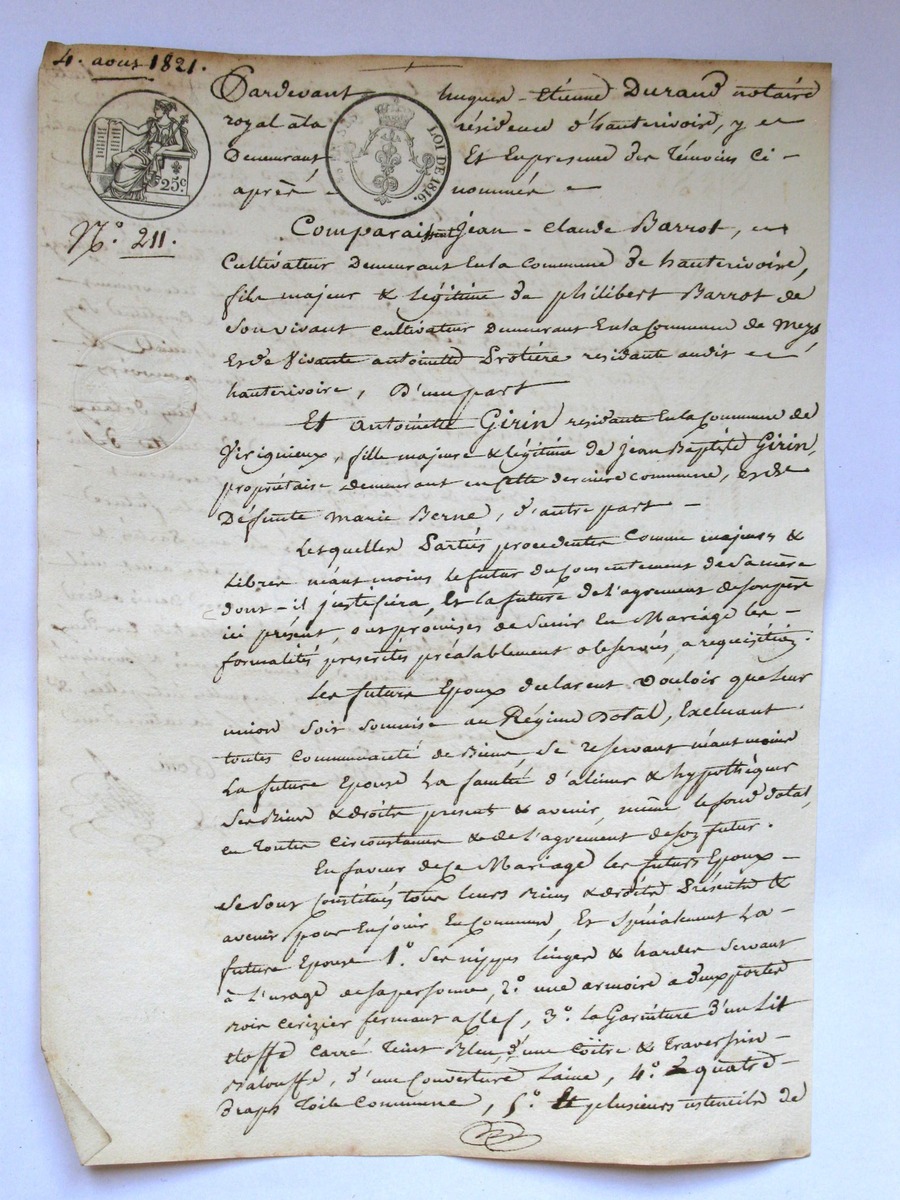 4. aous 1821.
Pardevant hugues - Etienne Durand notaire
royal à la résidence d'hauterivoire, y e
LOI DE 1816.
Demeurant Et En presence des Témoins Ci -
25c
après nommés
N°. 211.
Comparaissent jean - Claude Barrot,
Cultivateur Demeurant En la Commune De hauterivoire,
fils majeur & légitime de philibert Barrot de
Son vivant cultivateur demeurant En la Commune de Meys
Et de Vivante antoinette residante audit
hauterivoire, D'une part
Et Antoinette Girin residante En la Commune de
Virignieux, fille majeure & légitime de jean Baptiste Girin,
propriétaire demeurant en cette derniere commune, et de
Défunte marie Berne, d'autre part -
Lesquelles Parties procedentes Comme majeurs &
Libres néant moins le futur du Consentement de Sa mère
dont - il justifiera, Et la future de l'agrement de son père
ici présent, ont promises de S'unir En Mariage les -
formalités prescrites préalablement observées, a requisition.
Les futurs Epoux declarent Vouloir que Leur
union Soit Soumise au Régime Dotal, Excluant
toutes Communauté de Biens Se reservant néant moins
La future Epouse La faculté d'aliener & hypothéquer
Ses Biens & droits present & avenir, même le fond dotal,
en toutes Circonstances & de l'agrement de son futur.
En faveur de Ce Mariage les futurs Epoux -
Se Sont Constitués tous leurs Biens & droits Présents &
avenir, pour En jouir En Commun, Et Spécialement La -
future Epouse 1°. Ses nippes linges & hardes Servant
à L'usage de sa personne, 2°. une armoire a deux portes
Bois cerizier fermant a Clef, 3°. la Garniture d'un Lit
Etoffe Carré Teint Bleu, d'une Coître & Traversin
Balouffe, d'une Couverture Laine, 4°. quatre
draps Toile Commune, 5°. Et plusieurs ustenciles de